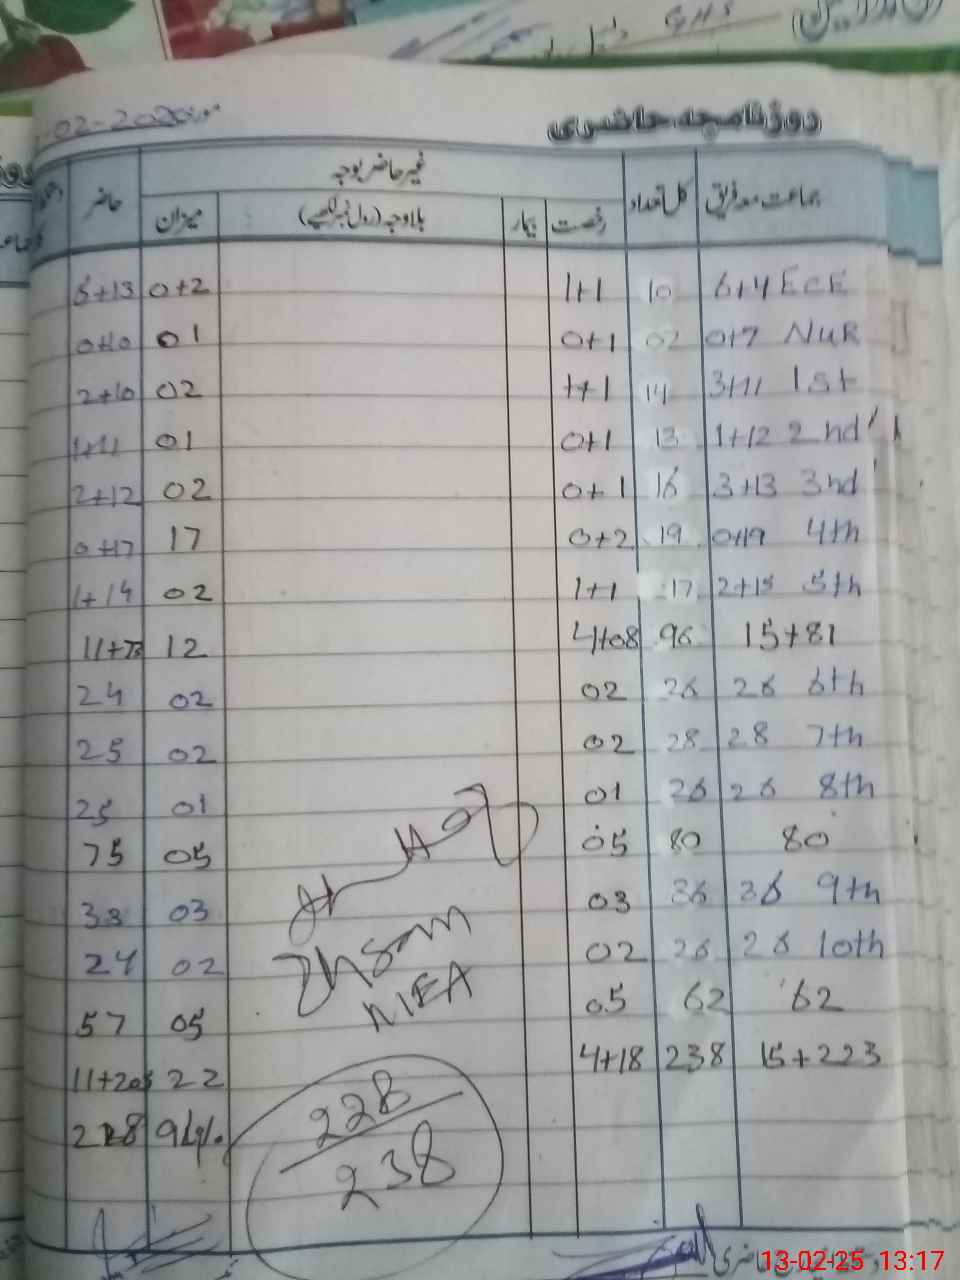 GHS
روزنامچہ حاضری
02-2025-
جماعت معہ فریق کل تعداد غیر حاضر بوجہ حاضر
رخصت بیمار بلاوجہ (رول نمبر لکھیے) میزان
6+4 ECE 10 1+1 0+2 6+13
0+7 NUR 07 0+1 01 0+10
3+11 1st 14 1+1 02 2+10
1+12 2nd 13 0+1 01 1+11
3+13 3nd 16 0+1 02 2+12
0+19 4th 19 0+2 17 0+17
2+15 5th 17 1+1 02 1+14
15+81 96 4+08 12 11+73
26 6th 26 02 02 24
28 7th 28 02 02 25
26 8th 26 01 01 25
80 80 05 05 75
36 9th 36 03 03 33
26 10th 26 02 02 24
62 62 05 05 57
15+223 238 4+18 22 11+205
228
MEA
228
238
حاضری
13-02-25 13:17